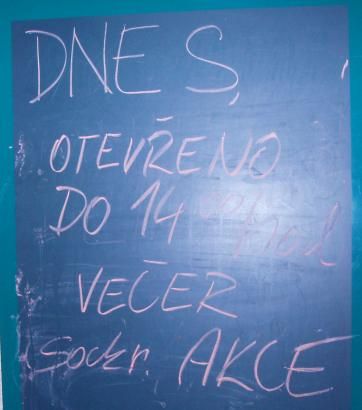 DNES,
OTEVŘENO
DO 14 00 hod
VEČER
Soukr. AKCE